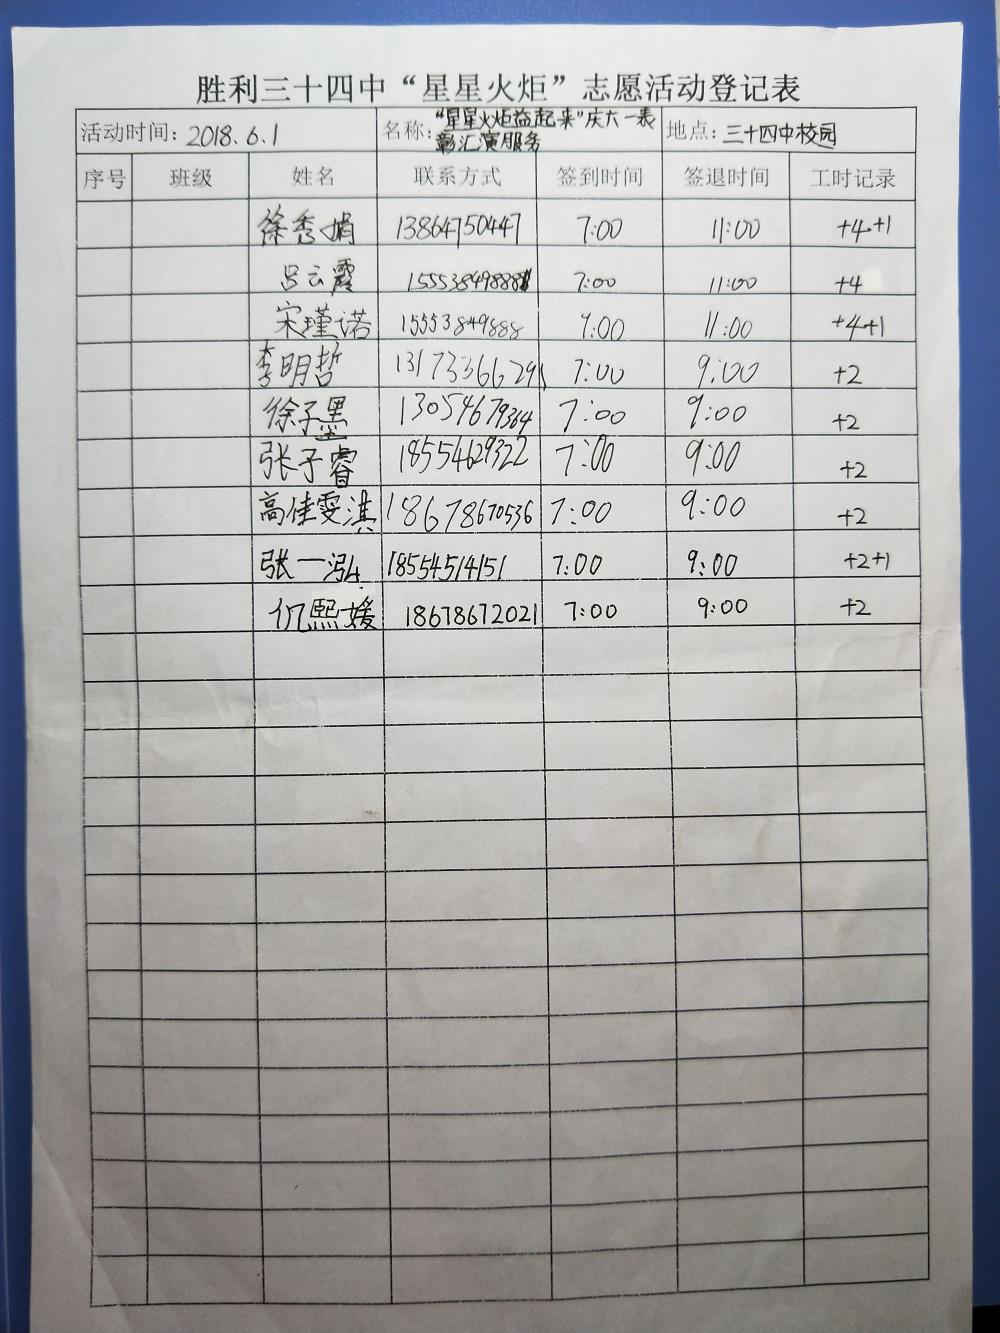 胜利三十四中“星星火炬”志愿活动登记表
活动时间：2018.6.1 名称：“星星火炬益起来”庆六一表彰汇演服务 地点：三十四中校园
序号 班级 姓名 联系方式 签到时间 签退时间 工时记录
徐秀娟 13864750447 7:00 11:00 +4+1
吕云霞 15553849888 7:00 11:00 +4
宋瑾诺 15553849888 7:00 11:00 +4+1
李明哲 13173366291 7:00 9:00 +2
徐子墨 13054679364 7:00 9:00 +2
张子睿 18554629322 7:00 9:00 +2
高佳雯淇 18678670536 7:00 9:00 +2
张一泓 18554514151 7:00 9:00 +2+1
仉熙媛 18678672021 7:00 9:00 +2